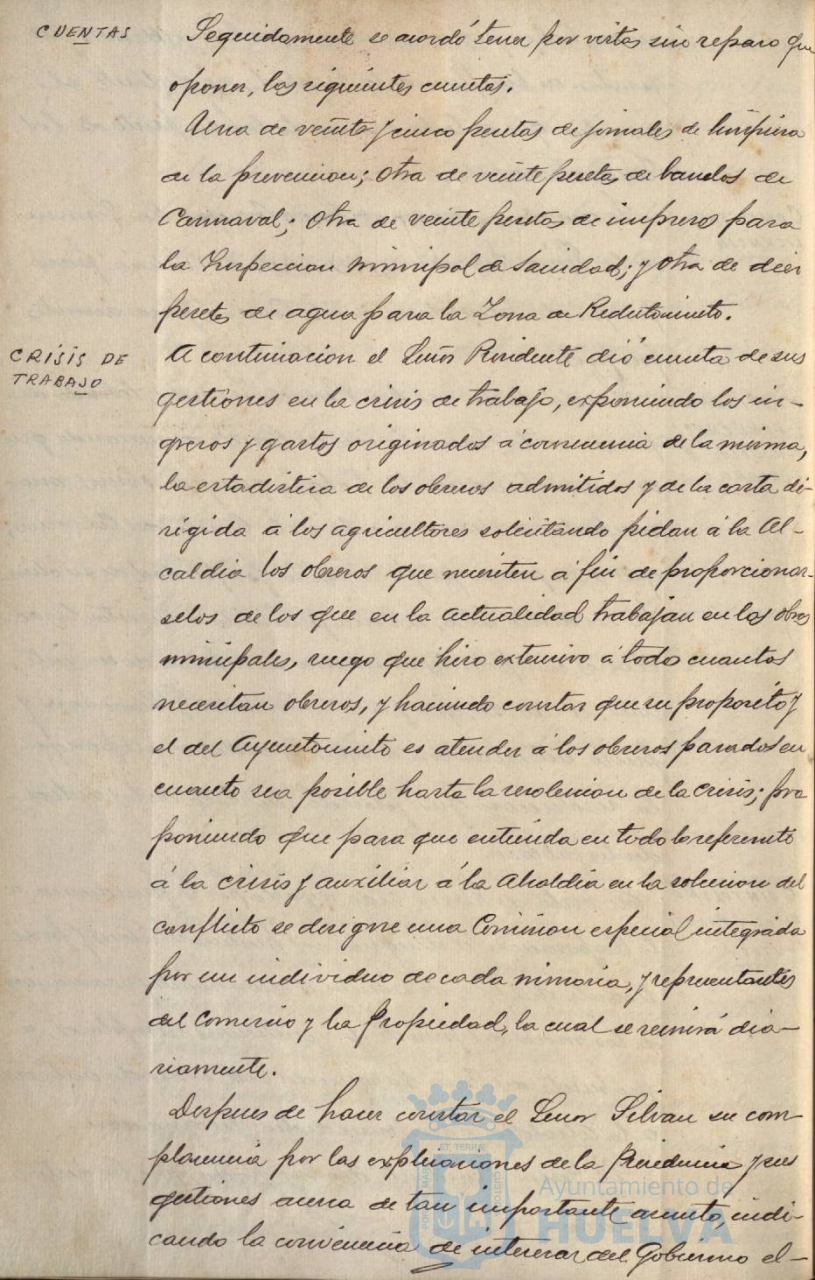 CUENTAS
Seguidamente se acordó tener por vistas sin reparo que
oponer, las siguientes cuentas.
Una de veinte y cinco pesetas de jornales de limpieza
de la prevencion; otra de veinte pesetas de bandos de
Carnaval; otra de veinte pesetas de impresos para
la Inspeccion municipal de Sanidad; y otra de diez
pesetas de agua para la Zona de Reclutamiento.
CRÍSIS DE
TRABAJO
A continuacion el Señor Presidente dió cuenta de sus
gestiones en la crisis de trabajo, exponiendo los in-
gresos y gastos originados á consecuencia de la misma,
la estadistica de los obreros admitidos y de la carta di-
rigida á los agricultores solicitando pidan á la Al-
caldia los obreros que necesiten á fin de proporcionar-
selos de los que en la actualidad trabajan en las obras
municipales, ruego que hizo extensivo á todo cuantos
necesitan obreros, y haciendo constar que su proposito y
el del Ayuntamiento es atender á los obreros parados en
cuanto sea posible hasta la resolucion de la crisis; pro
poniendo que para que entienda en todo lo referente
á la crisis y auxiliar á la Alcaldia en la solucion del
conflicto se designe una Comision especial integrada
por un individuo de cada minoria, y representantes
del Comercio y la Propiedad, la cual se reunirá dia-
riamente.
Despues de hacer constar el Señor Silvan su com-
placencia por las explicaciones de la Presidencia y sus
gestiones acerca de tan importante asunto, indi-
cando la conveniencia de interesar del Gobierno el-
Ayuntamiento de
HUELVA